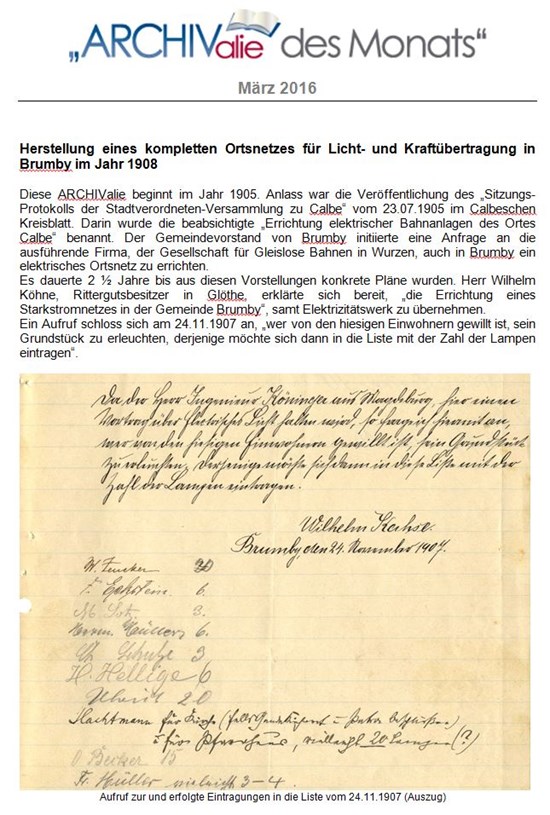 „ARCHIValie des Monats“
März 2016
Herstellung eines kompletten Ortsnetzes für Licht- und Kraftübertragung in
Brumby im Jahr 1908
Diese ARCHIValie beginnt im Jahr 1905. Anlass war die Veröffentlichung des „Sitzungs-
Protokolls der Stadtverordneten-Versammlung zu Calbe“ vom 23.07.1905 im Calbeschen
Kreisblatt. Darin wurde die beabsichtigte „Errichtung elektrischer Bahnanlagen des Ortes
Calbe“ benannt. Der Gemeindevorstand von Brumby initiierte eine Anfrage an die
ausführende Firma, der Gesellschaft für Gleislose Bahnen in Wurzen, auch in Brumby ein
elektrisches Ortsnetz zu errichten.
Es dauerte 2 ½ Jahre bis aus diesen Vorstellungen konkrete Pläne wurden. Herr Wilhelm
Köhne, Rittergutsbesitzer in Glöthe, erklärte sich bereit, „die Errichtung eines
Starkstromnetzes in der Gemeinde Brumby“, samt Elektrizitätswerk zu übernehmen.
Ein Aufruf schloss sich am 24.11.1907 an, „wer von den hiesigen Einwohnern gewillt ist, sein
Grundstück zu erleuchten, derjenige möchte sich dann in die Liste mit der Zahl der Lampen
eintragen“.
Da der Herr Ingenieur aus Magdeburg, hier einen
Vortrag über Electrisches Licht halten wird, so frage ich hiermit an,
wer von den hiesigen Einwohnern gewillt ist, sein Grundstück
zu erleuchten, derjenige möchte sich dann in diese Liste mit der
Zahl der Lampen eintragen.
Wilhelm
Brumby, den 24. November 1907.
W. 20
Eckstein. 6.
M. 3.
Herm. Müller 6.
3
H. Hellige 6
20
für Kirche (falls u.
u. fürs Pfarrhaus, vielleicht 20 Lampen (?)
O Becker 15
Fr. Müller vielleicht 3–4.
Aufruf zur und erfolgte Eintragungen in die Liste vom 24.11.1907 (Auszug)